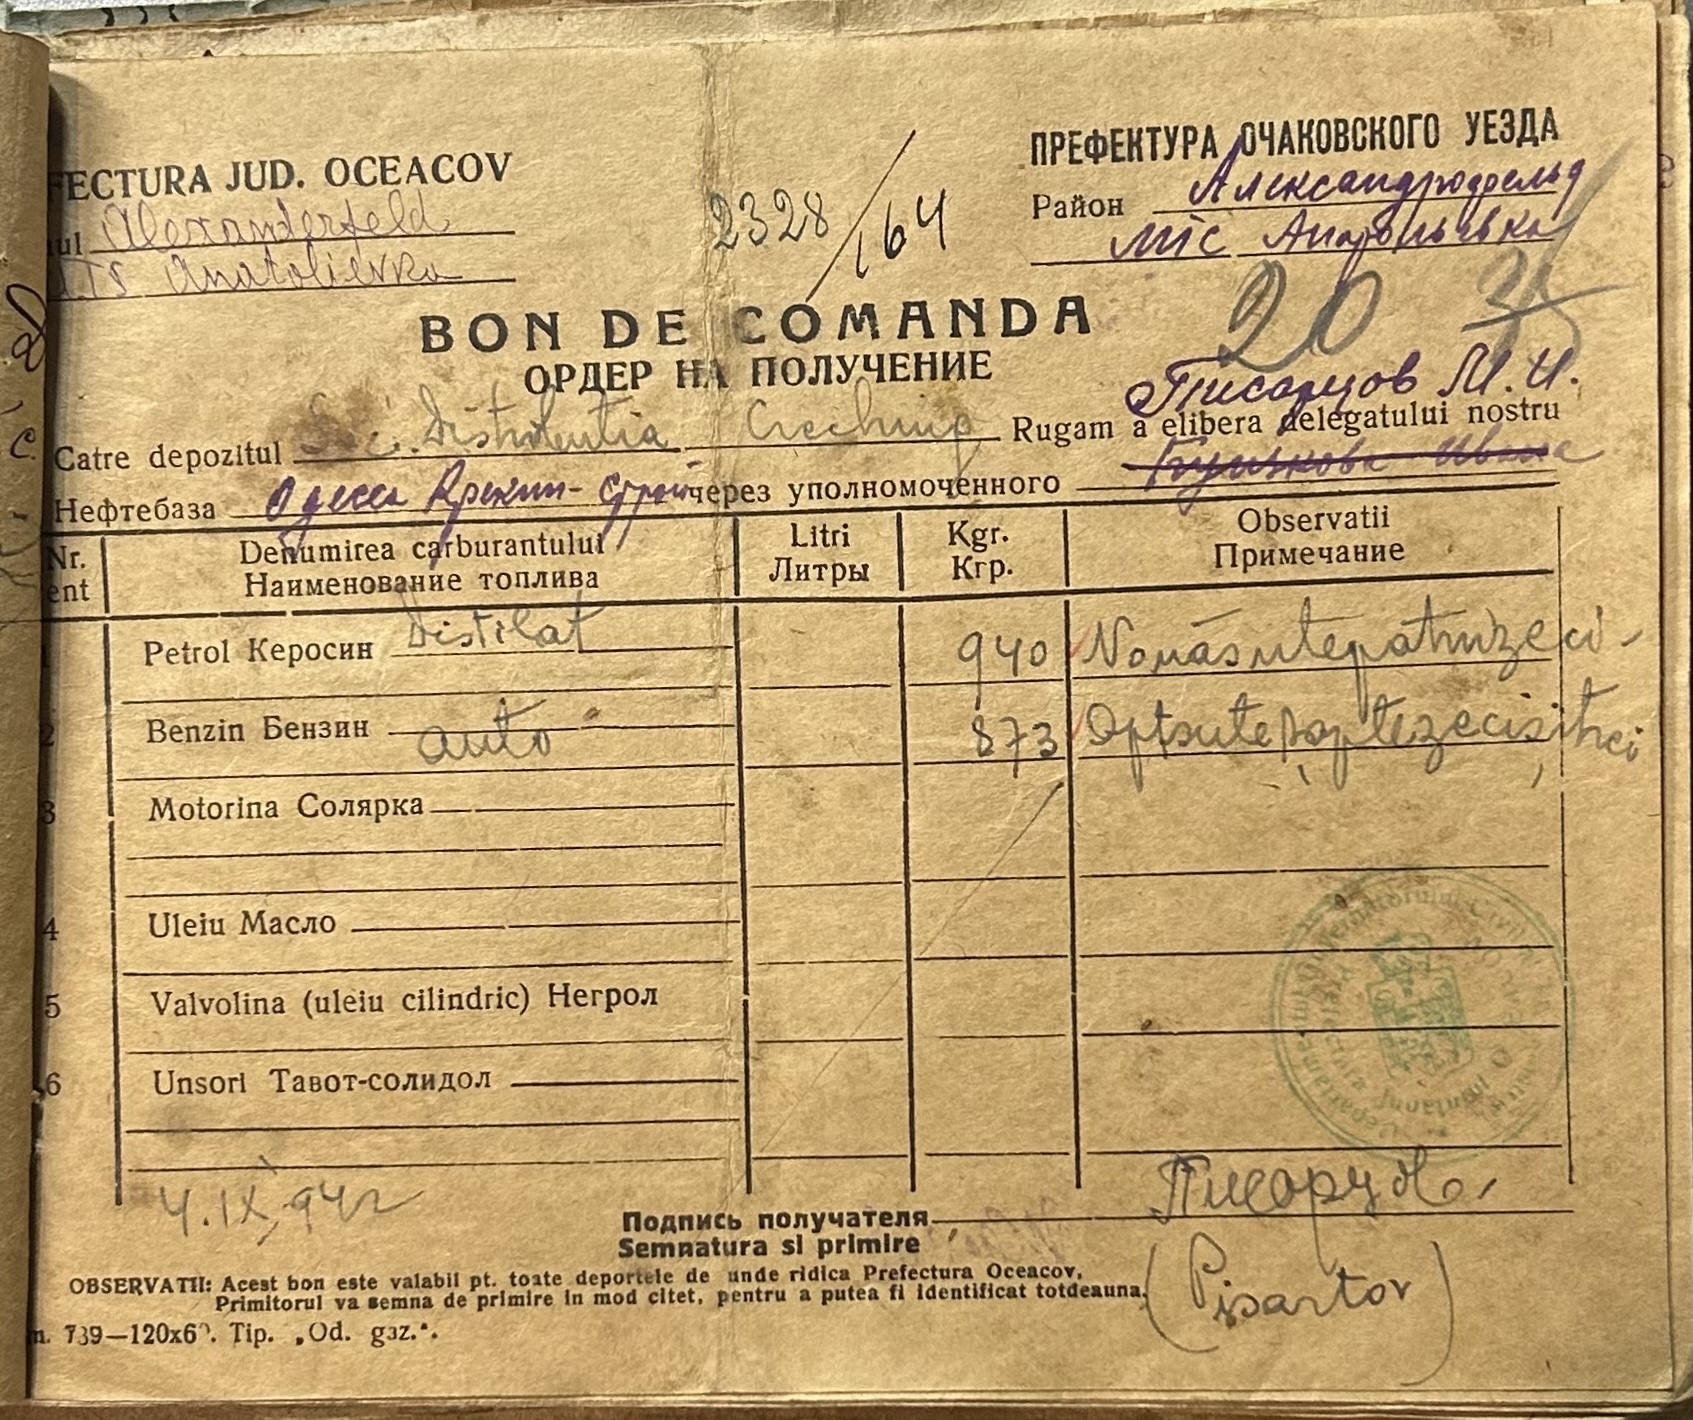 FECTURA JUD. OCEACOV
ПРЕФЕКТУРА ОЧАКОВСКОГО УЕЗДА
ul Alexanderfeld
2328/164
Район Александрофельд
TS Anatolievka
МТС Анатольевка
BON DE COMANDA
20
ОРДЕР НА ПОЛУЧЕНИЕ
Писарцов М. И.
Catre depozitul Distributia Rugam a elibera delegatului nostru
Нефтебаза Одесса Крекин- через уполномоченного Ивана
Nr. Denumirea carburantului Litri Kgr. Observatii
ent Наименование топлива Литры Кгр. Примечание
Petrol Керосин Distilat 940 Nouăsutepatruzeci
2 Benzin Бензин auto 873 Optsuteșaptezecișitrei
3 Motorina Солярка
4 Uleiu Масло
5 Valvolina (uleiu cilindric) Негрол
6 Unsori Тавот-солидол
4.IX.942
Подпись получателя
Semnatura si primire
(Pisartov)
OBSERVATII: Acest bon este valabil pt. toate deportele de unde ridica Prefectura Oceacov.
Primitorul va semna de primire in mod citet, pentru a putea fi identificat totdeauna.
739—120x6 . Tip. „Od. gaz.“.